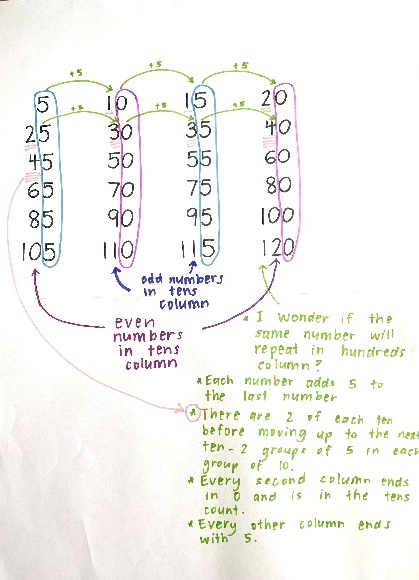 +5 +5 +5
5 10 15 20
+5 +5 +5
25 30 35 40
45 50 55 60
65 70 75 80
85 90 95 100
105 110 115 120
odd numbers
in tens
column
even
numbers
in tens
column
* I wonder if the
same number will
repeat in hundreds
column?
* Each number adds 5 to
the last number
* There are 2 of each ten
before moving up to the next
ten - 2 groups of 5 in each
group of 10.
* Every second column ends
in 0 and is in the tens
count.
* Every other column ends
with 5.